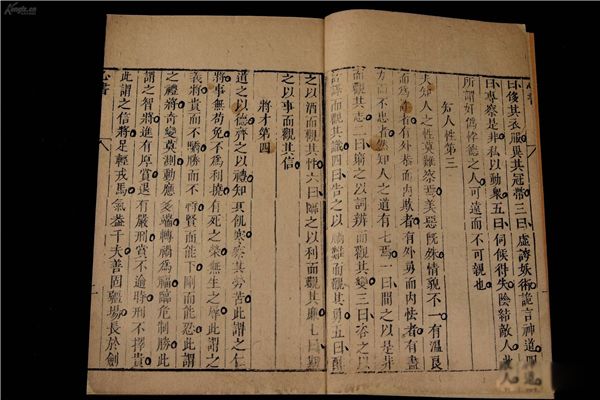 曰侈其衣服異其冠帶三曰虛誇妖術詭言神道四
曰專察是非私以動衆五曰伺候得失陰結敵人此
所謂姦僞悖德之人可遠而不可親也
知人性第三
夫知人之性莫難察焉美惡既殊情貌不一有溫良
而爲詐者有外恭而內欺者有外勇而內怯者有盡
力而不忠者然知人之道有七焉一曰問之以是非
而觀其志二曰窮之以詞辨而觀其變三曰咨之以
計謀而觀其識四曰告之以禍難而觀其勇五曰醉
之以酒而觀其性六曰臨之以利而觀其廉七曰期
之以事而觀其信
將才第四
道之以德齊之以禮知其飢寒察其勞苦此謂之仁
將事無苟免不爲利撓有死之榮無生之辱此謂之
義將貴而不驕勝而不恃賢而能下剛而能忍此謂
之禮將奇變莫測動應多端轉禍爲福臨危制勝此
謂之智將進有厚賞退有嚴刑賞不逾時刑不擇貴
此謂之信將足輕戎馬氣蓋千夫善固疆場長於劍
心書